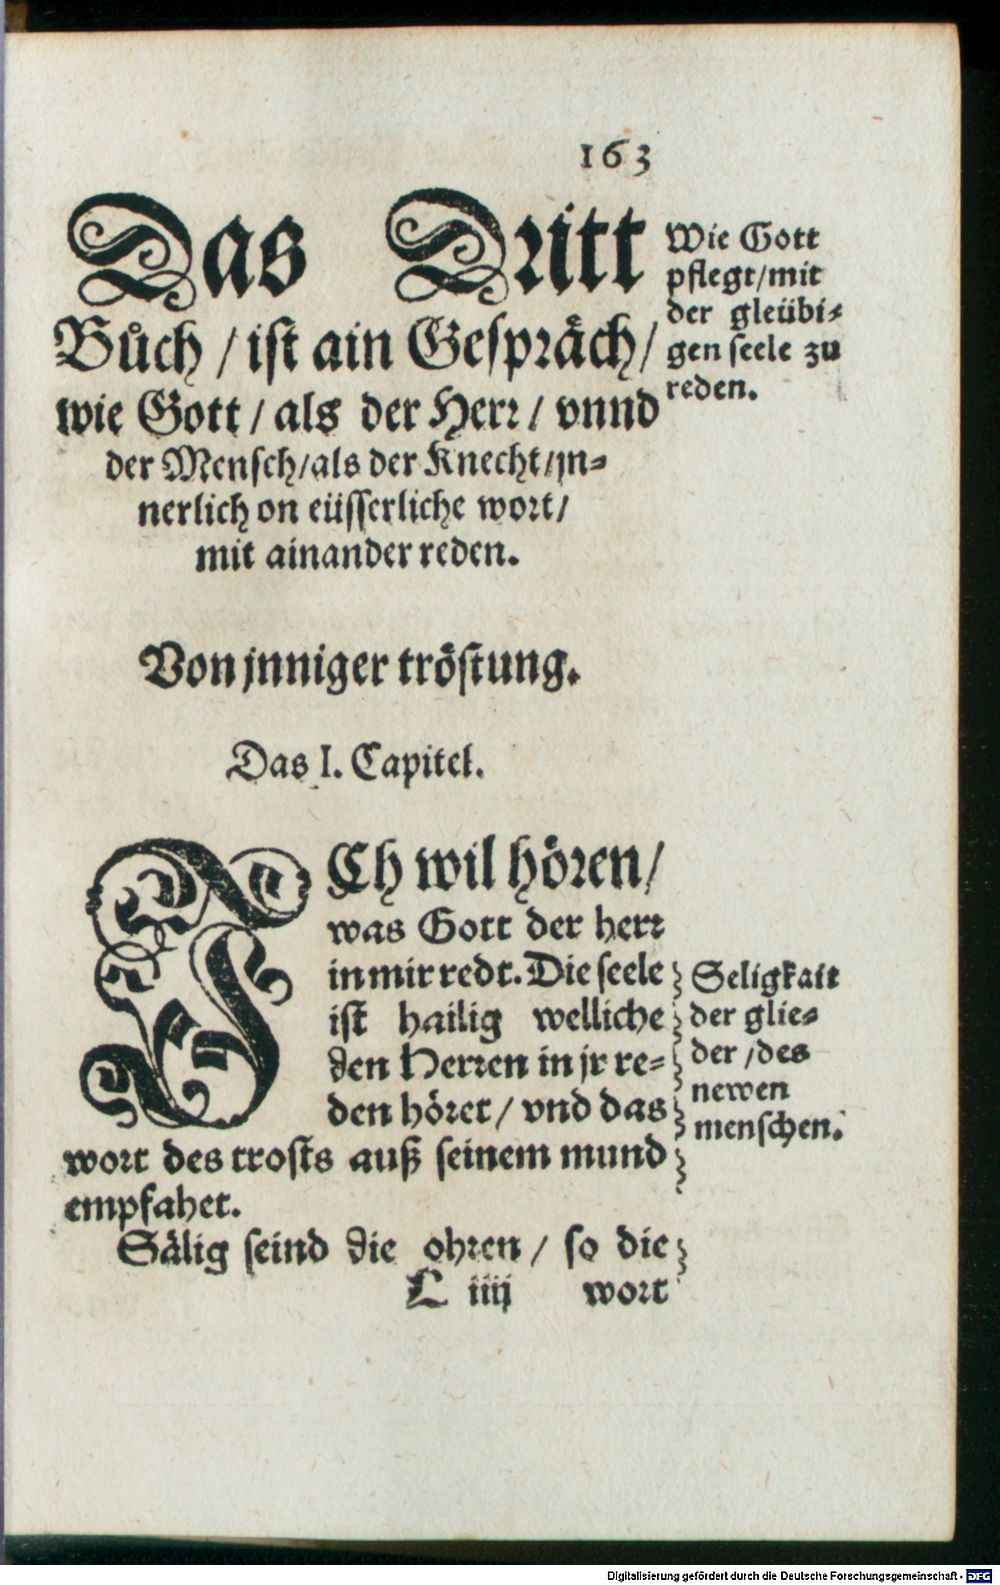 163
Das Dritt
Bůch / ist ain Gespräch /
wie Gott / als der Herr / vnnd
der Mensch / als der Knecht / jn⸗
nerlich on eüsserliche wort /
mit ainander reden.
Wie Gott
pflegt / mit
der gleübi⸗
gen seele zu
reden.
Von jnniger tröstung.
Das I. Capitel.
ICh wil hören /
was Gott der herr
in mir redt. Die seele
ist hailig welliche
den Herren in jr re⸗
den höret / vnd das
wort des trosts auß seinem mund
empfahet.
Seligkait
der glie⸗
der / des
newen
menschen.
Sälig seind die ohren / so die
L iiij wort
Digitalisierung gefördert durch die Deutsche Forschungsgemeinschaft - DFG